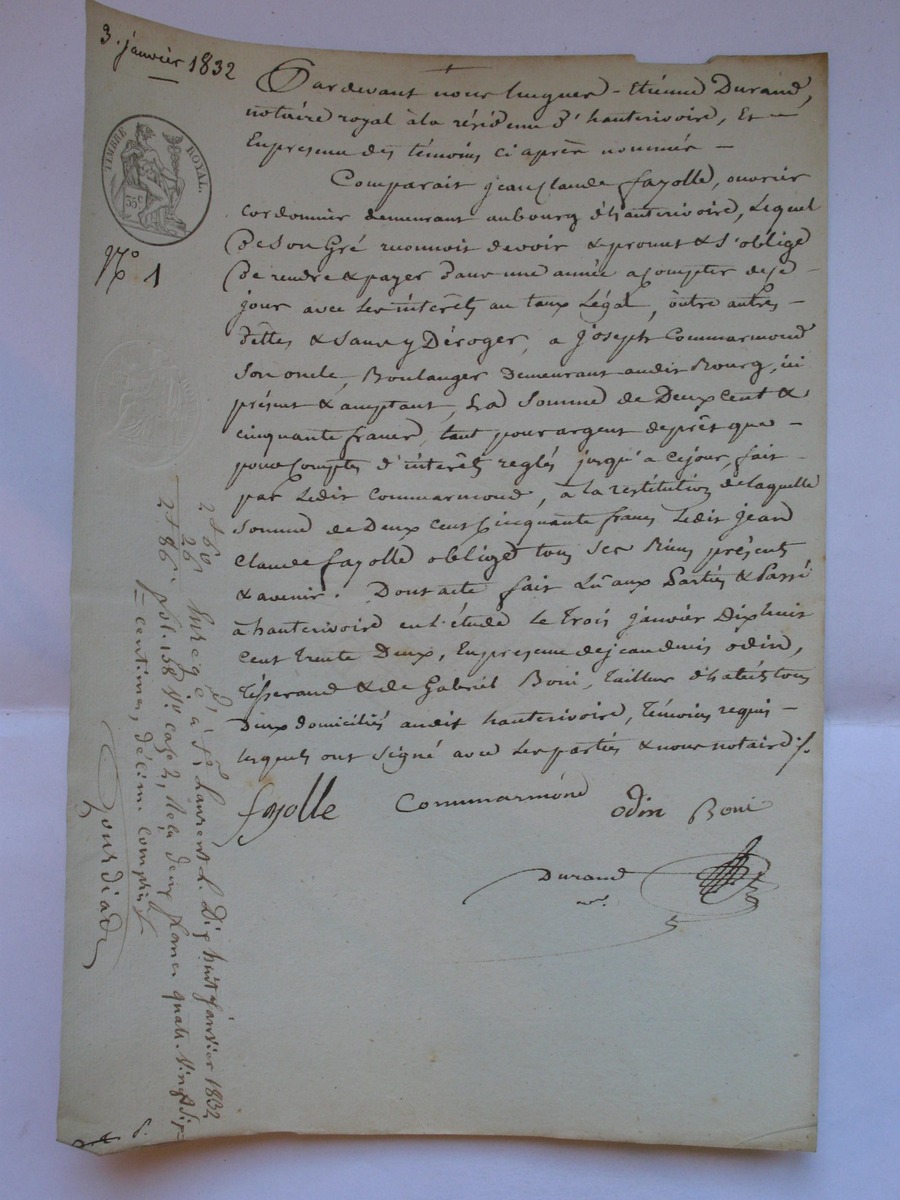 3. janvier 1832
TIMBRE ROYAL.
35 c
N.o 1
Pardevant nous hugues - Etienne Durand,
notaire royal à la résidence d'hauterivoire, Et -
En presence des témoins ci après nommés -
Comparait jean Claude fayolle, ouvrier
cordonnier demeurant au bourg d'hauterivoire, Lequel
De son Gré reconnoit devoir & promet & s'oblige
De rendre & payer dans une année a compter de ce -
jour avec les intérêts au taux Légal, outre autres -
dettes & sans y Déroger, a joseph Commarmond
son oncle, Boulanger Demeurant audit Bourg, ici
présent & acceptant, La somme de Deux cent &
cinquante francs, tant pour argent de prêt que -
pour Comptes d'intérêts reglés jusqu'a ce jour, fait -
par Ledit Commarmond, à la restitution de laquelle
somme de Deux cent cinquante francs Ledit jean
Claude fayolle oblige tous ses Biens présents
& avenir. Dont acte fait Lû aux Parties & Passé
à hauterivoire en l'étude Le Trois janvier Dix huit
cent Trente Deux, En presence de jean denis odin,
Tisserand & de Gabriel Boni, Tailleur d'habits tous
Deux domiciliés audit hauterivoire, Témoins requis -
lesquels ont signé avec Les parties & nous notaire ./.
fayolle Commarmond odin Boni
Durand
nre.
2 f 60
26
2 f 86
Enregé à St Laurent L. Dix huit janvier 1832
fol. 138 Vo case 2, Reçu deux francs quatre Vingt Six
centimes, décime compris
Gourdiad